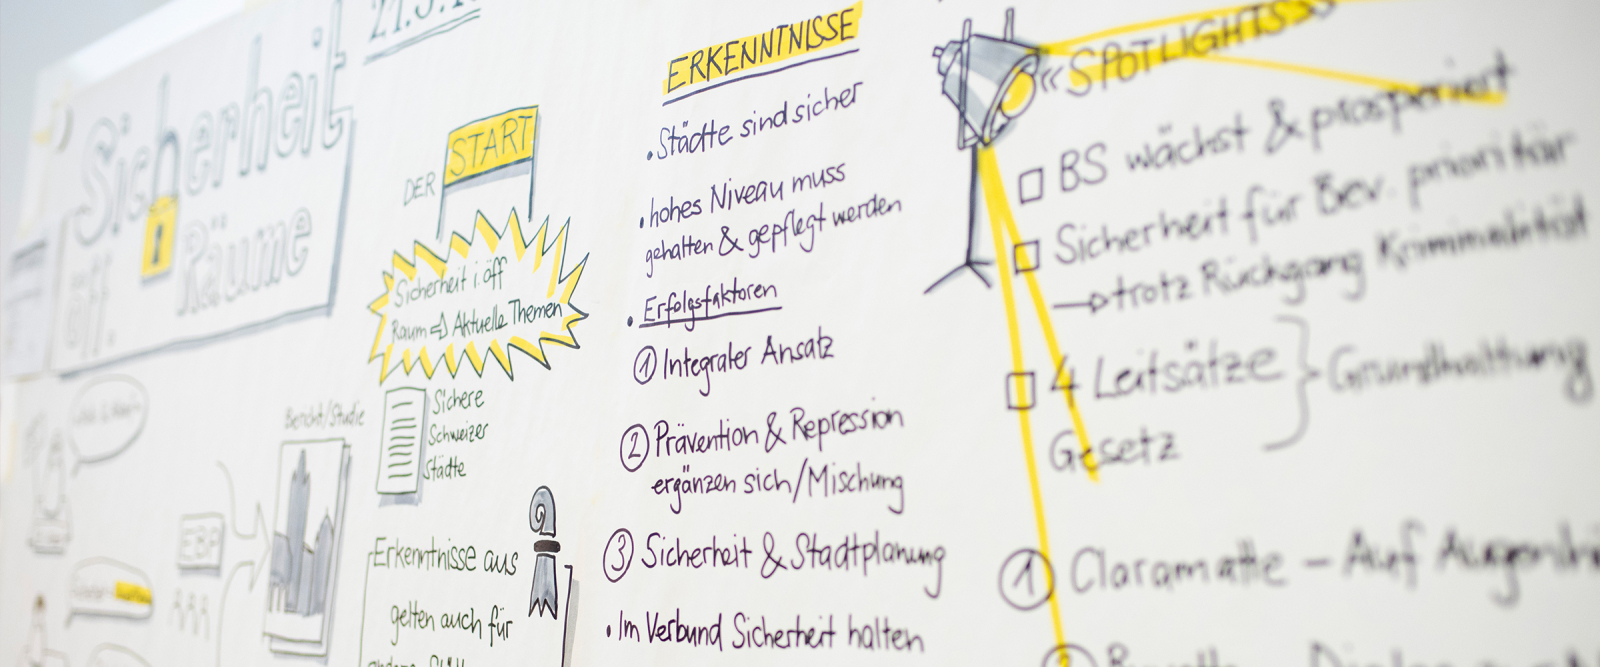 Sicherheit
öff. Räume
DER START
Sicherheit i. öff
Raum ⇒ Aktuelle Themen
Bericht/Studie
Sichere
Schweizer
Städte
EBP
Erkenntnisse aus
gelten auch für
ERKENNTNISSE
• Städte sind sicher
• hohes Niveau muss
gehalten & gepflegt werden
• Erfolgsfaktoren
① Integraler Ansatz
② Prävention & Repression
ergänzen sich/Mischung
③ Sicherheit & Stadtplanung
• Im Verbund Sicherheit halten
«SPOTLIGHTS»
□ BS wächst & prosperiert
□ Sicherheit für Bev. prioritär
→ trotz Rückgang Kriminalität
□ 4 Leitsätze } Grundhaltung
Gesetz
① Claramatte – Auf